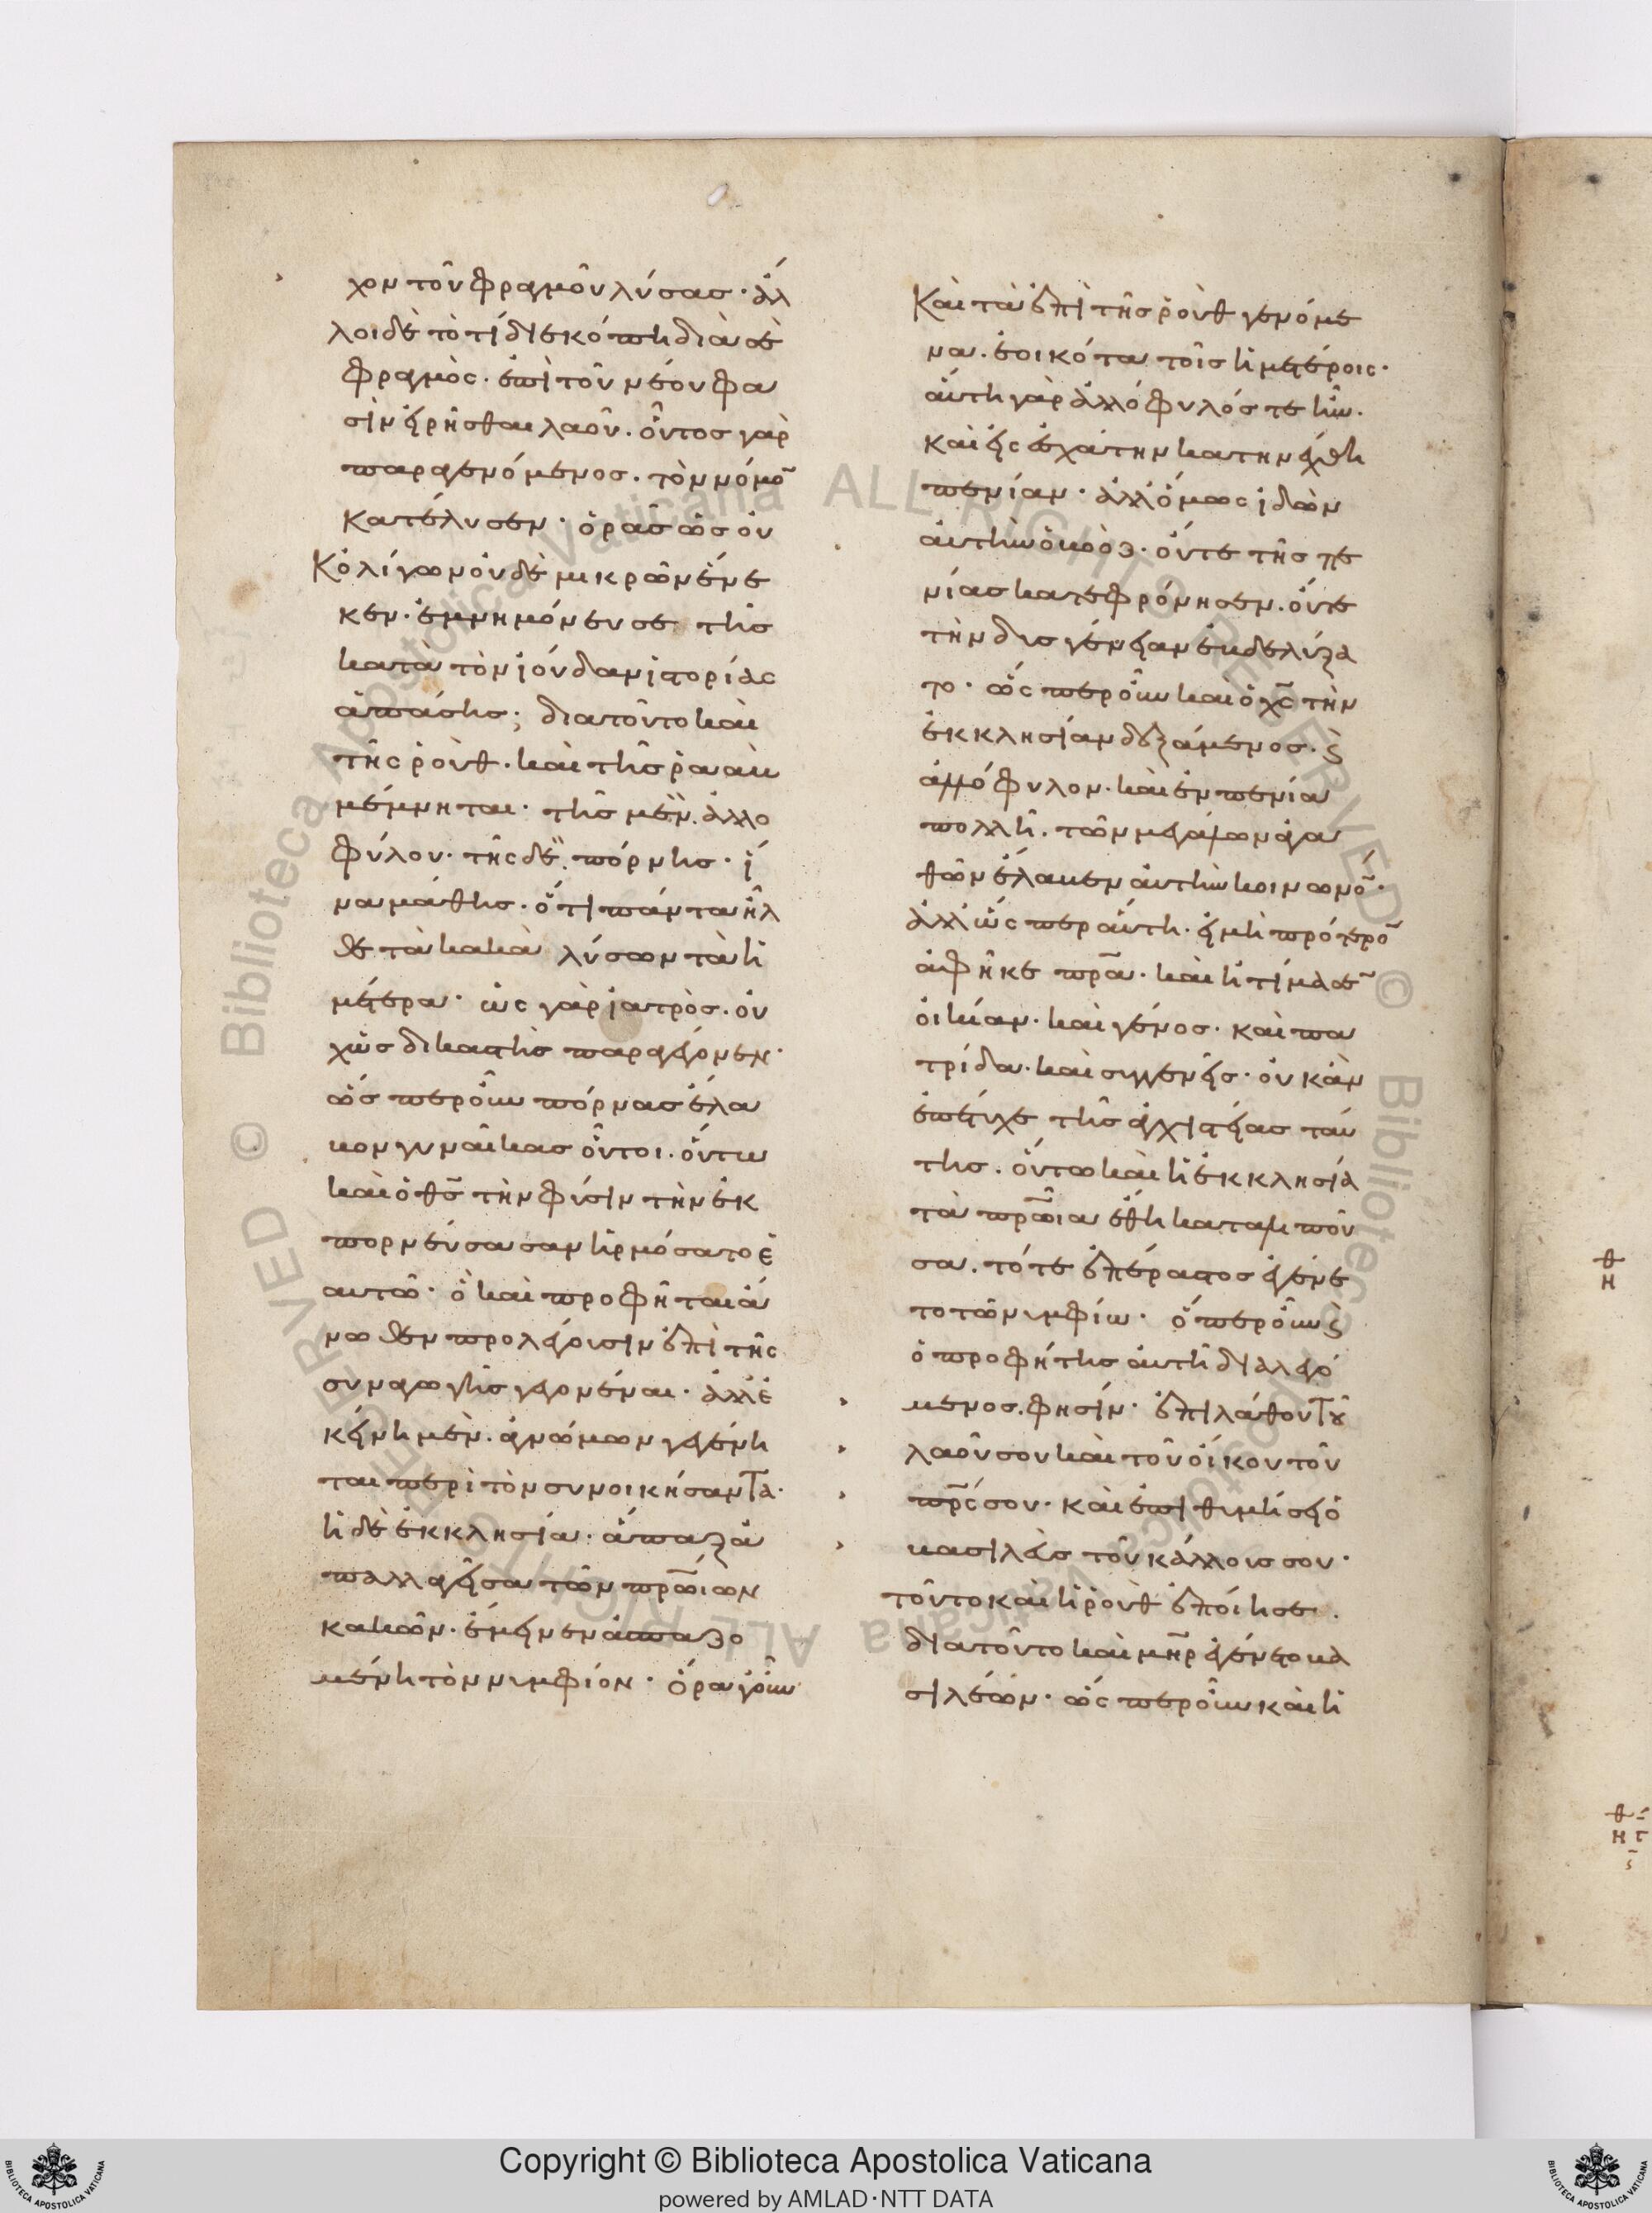 χον τοῦ φραγμοῦ λύσας· ἄλ
λοι δὲ τὸ τί διεκόπη διὰ σὲ
φραγμὸς· ἐπὶ τοῦ νέου φα
σὶν εἰρῆσθαι λαοῦ. οὗτος γὰρ
παραγενόμενος. τὸν νόμο̅
κατέλυσεν· ὁρᾶς ὡς οὐ
Κ ὀλίγων οὐδὲ μικρῶν ἕνε
κεν. ἐμνημόνευσε τῆς
κατὰ τὸν ἰούδαν ἱστορίας
ἁπάσης; διατοῦτο καὶ
τῆς ῥοὺθ. καὶ τῆς ῥαὰβ
μέμνηται· τῆς μὲν. ἀλλο
φύλου· τῆς δὲ. πόρνης· ἵ
να μάθης. ὅτι πάντα ἦλ
θε τὰ κακὰ λύσων τὰ ἡ
μέτερα· ὡς γὰρ ἰατρὸς. οὐ
χ ὡς δικαστὴς παραγέγονεν·
ὥσπερ οὖν πόρνας ἔλα
βον γυναῖκας οὗτοι. οὕτω
καὶ ὁ θ̅ς̅ τὴν φύσιν τὴν ἐκ
πορνεύσασαν ἡρμόσατο ἑ
αυτῷ· ὃ καὶ προφῆται ἄ
νωθεν προλέγουσιν ἐπὶ τῆς
συναγωγῆς γεγονέναι· ἀλλ' ἐ
κείνη μὲν. ἀγνώμων γεγένη
ται περὶ τὸν συνοικήσαντα·
ἡ δὲ ἐκκλησία. ἅπαξ ἀ
παλλαγεῖσα τῶν πρώιων
κακῶν. ἔμεινεν ἀσπαζο
μένη τὸν νυμφίον· ὅρα γοῦν
Καὶ τὰ ἐπὶ τῆς ῥοὺθ γενόμε
να. ἐοικότα τοῖς ἡμετέροις·
αὕτη γὰρ ἀλλόφυλός τε ἦν.
καὶ εἰς ἐσχάτην κατηνέχθη
πενίαν· ἀλλ' ὅμως ἰδὼν
αὐτὴν ὁ βοὸζ. οὔτε τῆς πε
νίας κατεφρόνησεν. οὔτε
τὴν δυσγένειαν ἐβδελύξα
το· ὥσπερ οὖν καὶ ὁ χ̅ς̅ τὴν
ἐκκλησίαν δεξάμενος. ϛ
ἀλλόφυλον. καὶ ἐν πενία
πολλῆ. τῶν μεγάλων ἀγα
θῶν ἔλαβεν αὐτὴν κοινωνό̅·
ἀλλ' ὥσπερ αὕτη. εἰ μὴ πρότερο̅
ἀφῆκε πρ̅α̅· καὶ ἠτίμασε̅
οἰκίαν· καὶ γένος· καὶ πα
τρίδα· καὶ συγγενεῖς· οὐκ ἂν
ἐπέτυχε τῆς ἀγχιστείας ταύ
της. οὕτω καὶ ἡ ἐκκλησία
τὰ πρῶια ἔθη καταλιποῦ
σα. τότε ἐπέραστος ἐγένε
το τῶ νυμφίω· ὅπερ οὖν ϛ
ὁ προφήτης αὐτῆ διαλεγό
μενος. φησίν· ἐπιλάθου τοῦ
λαοῦ σου καὶ τοῦ οἴκου τοῦ
πρ̅ς̅ σου· καὶ ἐπιθυμήσει ὁ
βασιλεὺς τοῦ κάλλους σου·
τοῦτο καὶ ἡ ῥοὺθ ἐποίησε.
διατοῦτο καὶ μη̅ρ ἐγένετο βα
σιλέων· ὥσπερ οὖν καὶ ἡ
Copyright © Biblioteca Apostolica Vaticana
powered by AMLAD·NTT DATA